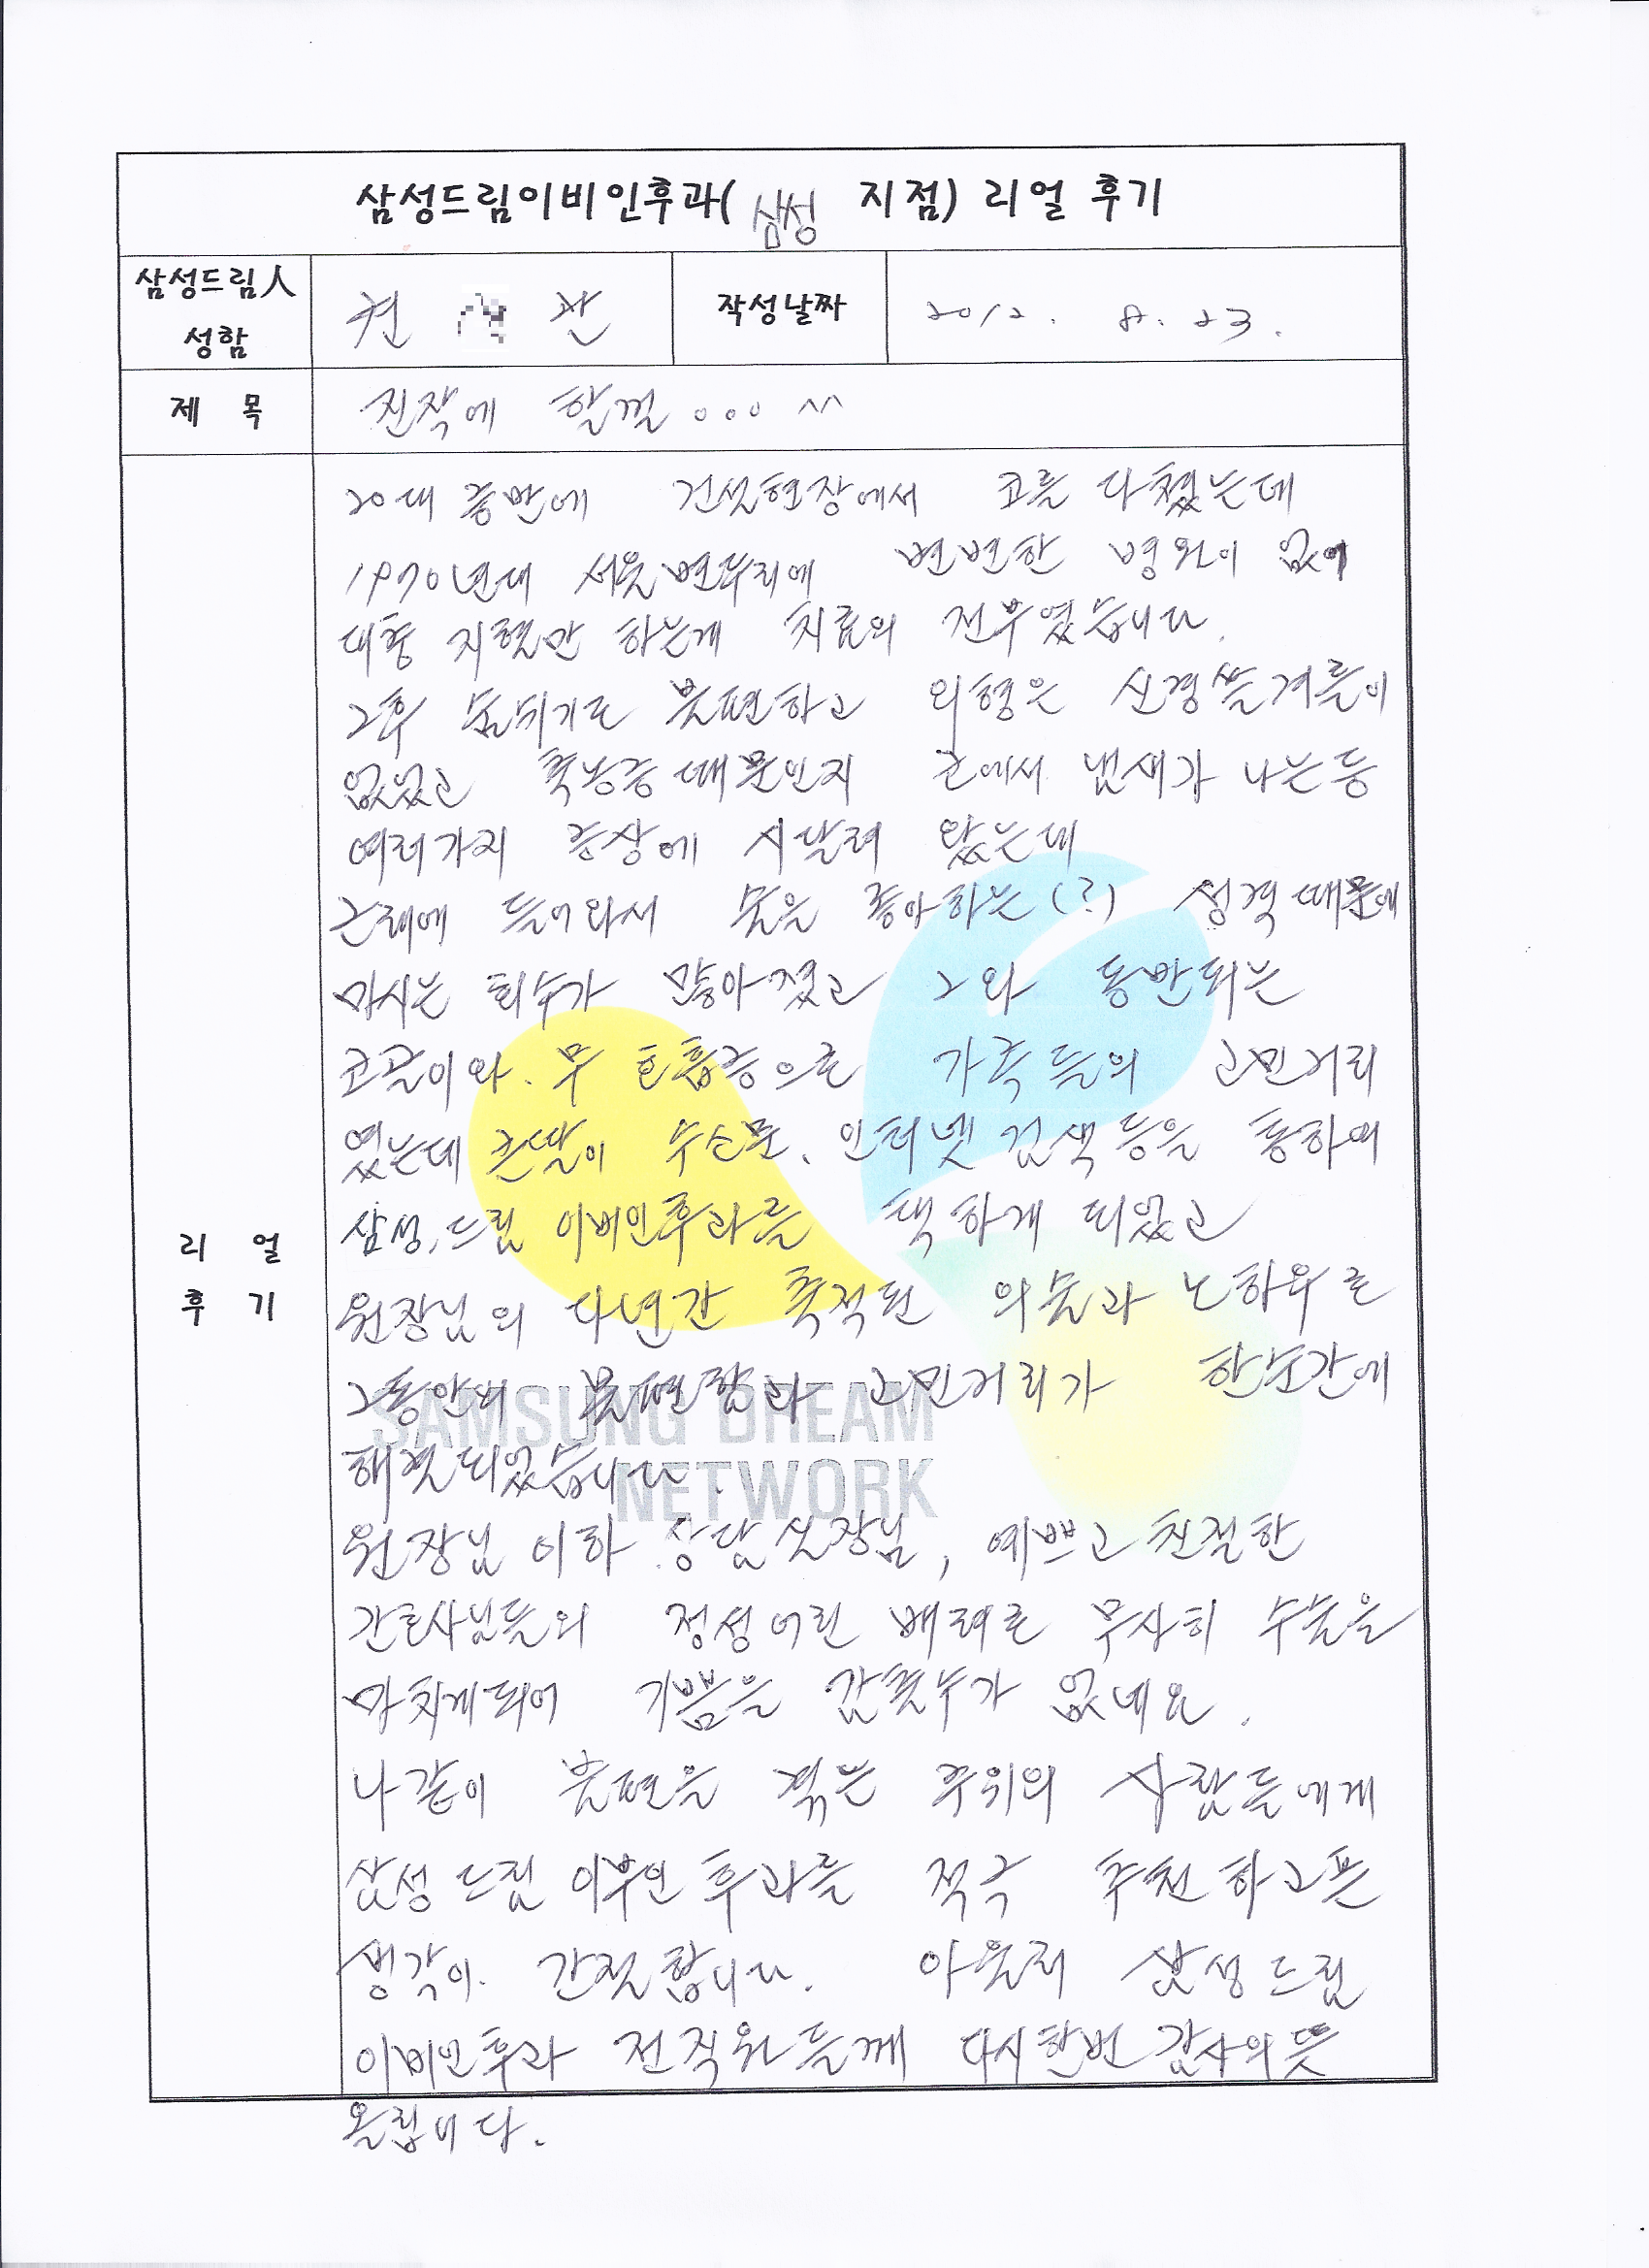 삼성드림이비인후과( 삼성 지점) 리얼 후기
삼성드림人
성함
권 관
작성날짜
2012. 8. 23.
제 목
진작에 할껄 ... ^^
리 얼
후 기
20대 중반에 건설현장에서 코를 다쳤는데
1970년대 서울변두리에 변변한 병원이 없어
대충 지혈만 하는게 치료의 전부였습니다.
그후 숨쉬기도 불편하고 외형은 신경쓸겨를이
없었고 축농증때문인지 코에서 냄새가 나는등
여러가지 증상에 시달려 왔는데
근래에 들어와서 술을 좋아하는(?) 성격때문에
마시는 회수가 많아졌고 그와 동반되는
코골이와. 무 호흡증으로 가족들의 고민거리
였는데 큰딸이 수소문, 인터넷 검색등을 통하여
삼성.드림 이비인후과를 택하게 되었고
원장님의 다년간 축적된 의술과 노하우로
그동안의 불편함과 고민거리가 한순간에
해결되었습니다.
원장님 이하 상담실장님, 예쁘고 친절한
간호사님들의 정성어린 배려로 무사히 수술을
마치게되어 기쁨을 감출수가 없네요.
나같이 불편을 겪는 주위의 사람들에게
삼성드림 이비인후과를 적극 추천하고픈
생각이. 간절합니다. 아울러 삼성드림
이비인후과 전직원들께 다시한번 감사의뜻
올립니다.
SAMSUNG DREAM
NETWORK